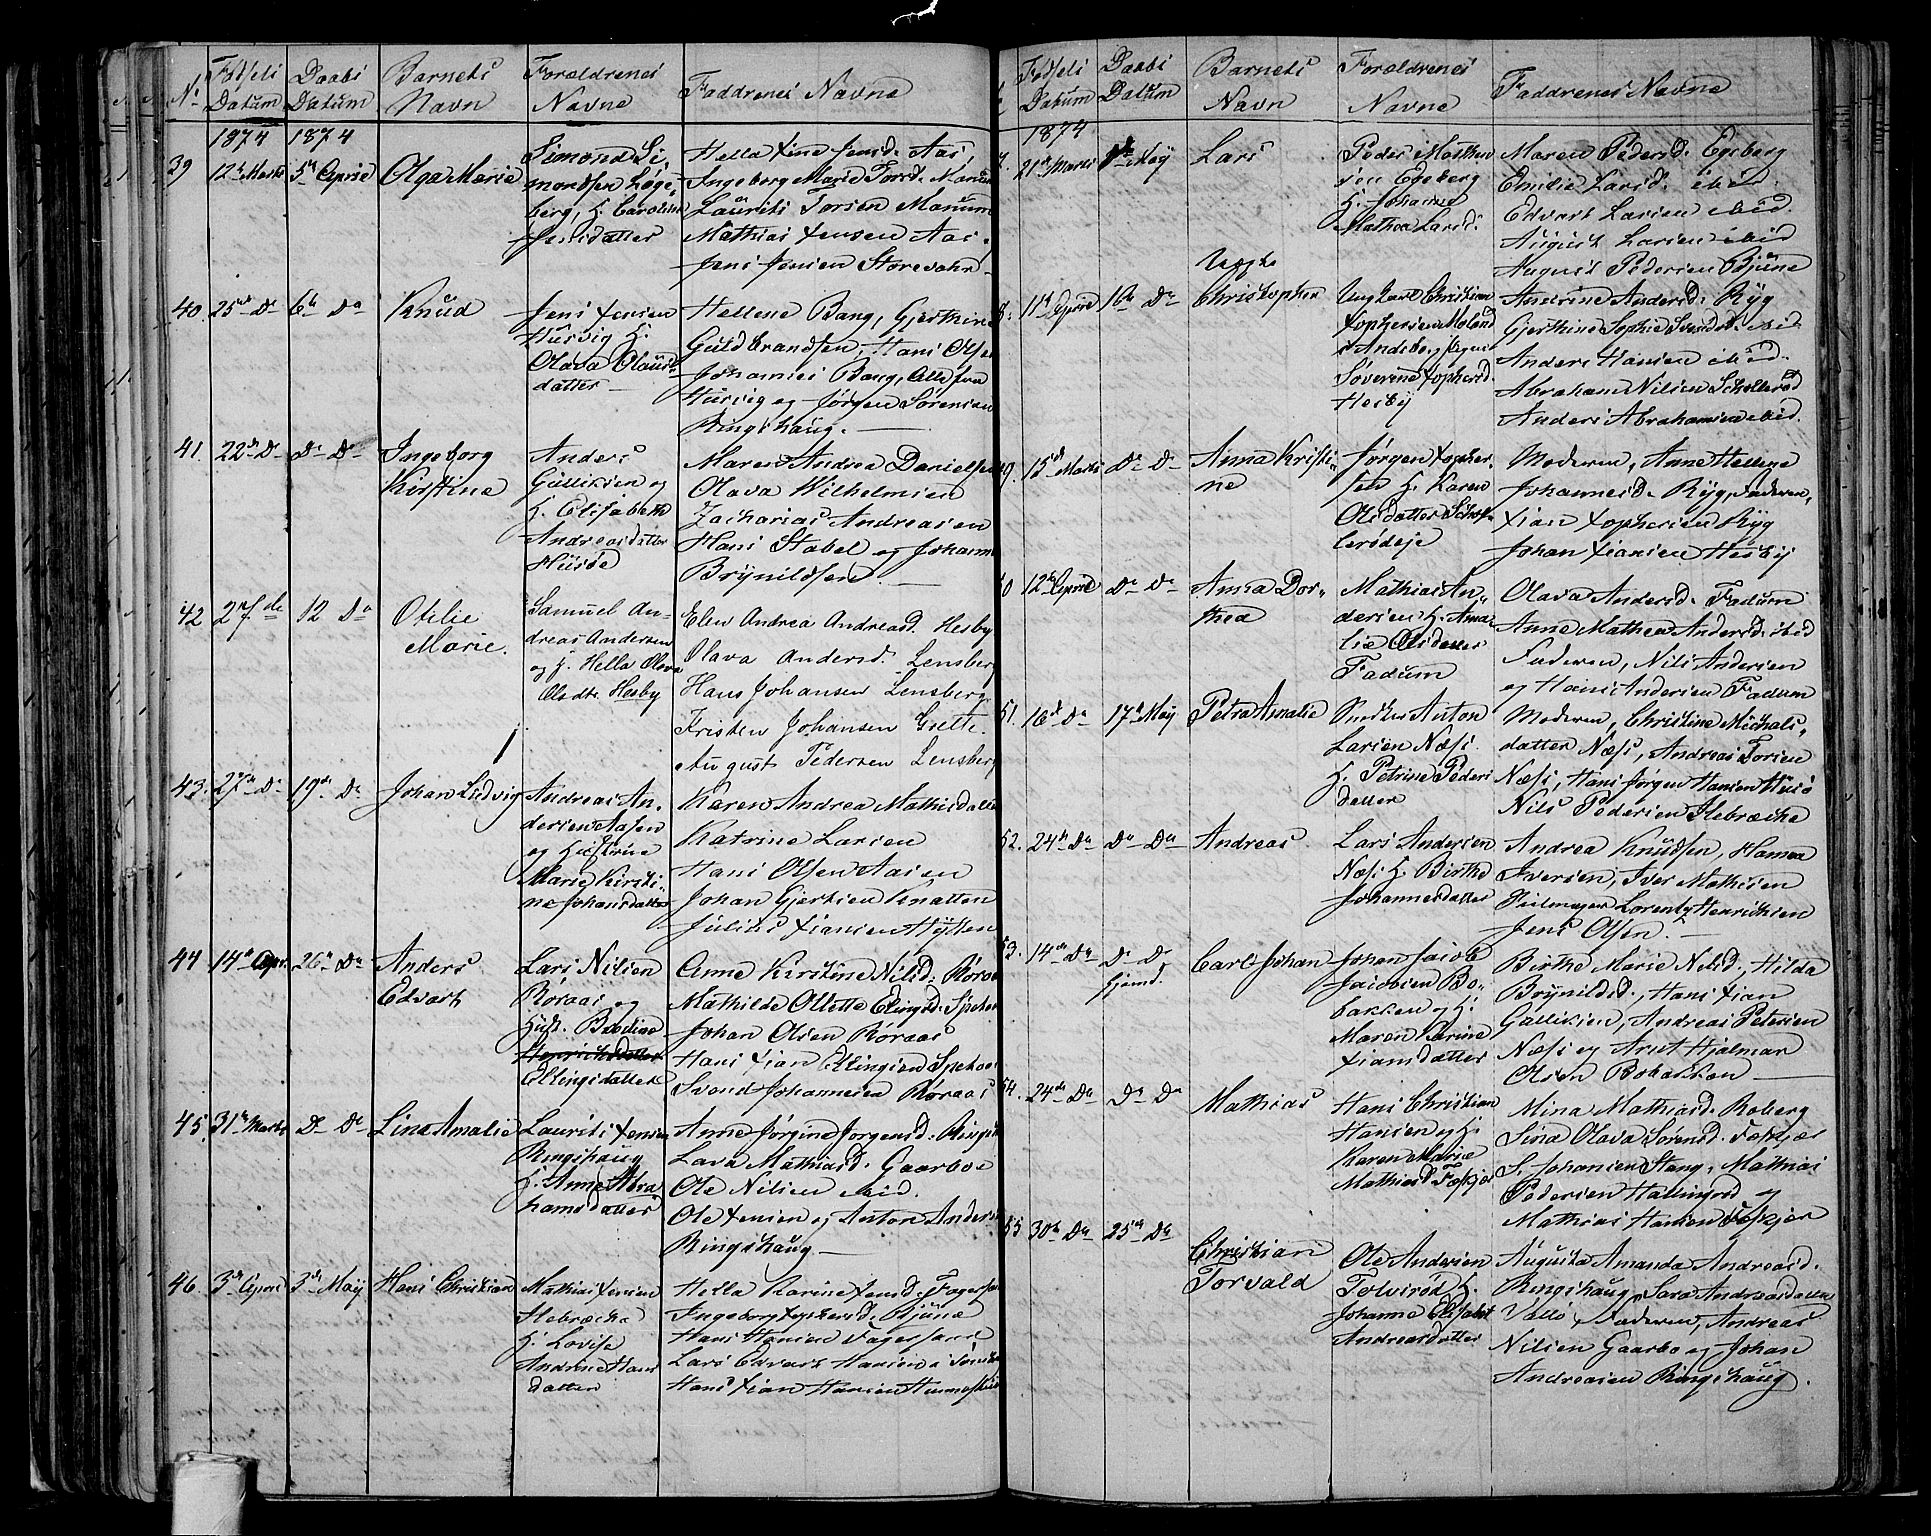 No Fødsels Datum
Daabs Datum
Barnets Navn
Forældrenes Navne
Faddrenes Navne
1874 1874
39 12te Marts 5te April Olga Marie
Simond Si-
mondsen Løge-
berg, H. Caroline
Jensdatter
Hella Xine Jensd. Aas,
Ingeborg Marie Torsd. Manum
Laurits Torsen Manum
Mathias Jensen Aas.
Jens Jensen Storevahr
40. 25de Do 6te Do Knud
Jens Jensen
Husvig H.
Olava Olaus-
datter
Hellene Bang, Gjerthine
Guldbrandsen, Hans Olsen
Johannes Bang, Alle fra
Husvig og Jørgen Sørensen
Ringshaug.
41. 22de Do Do Do Ingeborg
Kirstine
Anders
Gulliksen og
H. Elisabeth
Andreasdatter
Husøe
Maren Andrea Danielsen
Olava Wilhelmsen
Zacharias Andreasen
Hans Stabel og Johanne
Brynildsen
42 27de 12 Do Otilie
Marie.
Samuel An-
dreas Andersen
og H. Hella Olava
Olsdtr. Hesby
Elen Andrea Andreasd. Hesby
Olava Andersd. Lensberg
Hans Johansen Lensberg
Kristen Johansen Grette.
August Pedersen Lensberg
43. 27de Do 19de Do Johan Ludvig
Andreas An-
dersen Aasen
og Hustrue
Marie Kirsti-
ne Johansdatter
Karen Andrea Mathisdatter
Katrine Larsen
Hans Olsen Aasen
Johan Gjertsen Knatten
Julius Xiansen Hytten
44 14de Apr. 26de Do Anders
Edvart
Lars Nilsen
Røraas og
Hust. Bredine
Henrichsdatter
Ellingsdatter
Anne Kirstine Nilsd. Røraas
Mathilde Ollette Elingsd. Spetaas
Johan Olsen Røraas
Hans Xian Ellingsen Spetaas
Svend Johannesen Røraas
45. 31te Marts Do Do Lina Amalie
Laurits Jensen
Ringshaug
H. Anne Abra
hamsdatter
Anne Jørgine Jørgensd.
Lava Mathiasd. Gaarboe
Ole Nilsen ibid.
Ole Jensen og Anton Anders
Ringshaug
46. 3de April 3de May Hans Christian
Mathias Jensen
Ilebræcke
H. Lovise
Andrine Hans
datter
Hella Karine Jensd. Fagersand
Ingeborg Xophersd. Bjune
Hans Hansen Fagersand
Lars Edvart Hansen
Hans Xian Hansen
Fødsels Datum
Daabs Datum
Barnets Navn
Forældrenes Navne
Faddrenes Navne
1874
7. 21de Marts May Lars
Peder Mathias
sen Egeberg
H. Johanne
Mathea Larsd.
Maren Pedersd. Egeberg
Emilie Larsd. ibid.
Edvart Larsen ibid.
August Larsen ibid
August Pedersen Bjune
Uægte
8. 11te April 16de Do Christopher
Ung Karl Christian
Xophersen Moland
i Andebog Pigen
Severine Xophersd.
Hesby
Andrine Andersd. Ryg
Gjerthine Sophie Svendsd. ibid
Anders Hansen ibid.
Abraham Nilsen Schallerød
Anders Abrahamsen ibid.
9. 15de Marts Do Do Anna Kristi-
ne
Jørgen Xopher-
sen H. Karen
Olsdatter Schal-
lerødeje
Moderen, Anne Hellene
Johannesd. Ryg, Faderen,
Xian Xophersen Ryg
Johan Xiansen Hesby
0 12te April Do Do Anna Dor-
thea
Mathias An-
dersen H. Ama-
lie Olsdatter
Fadum
Olava Andersd. Fadum
Anne Mathea Andersd. ibid
Faderen, Nils Andersen
og Hans Andersen Fadum
51. 16de Do 17de May Petra Amalie
Anton
Larsen Næss.
H. Petrine Peders
datter
Moderen, Christine Michals-
datter Næss, Andreas Torsen
Næss, Hans Jørgen Hansen Husø
Nils Pedersen Ilebræcke
52. 24de Do Do Do Andreas
Lars Andersen
Næss H. Birthe
Johannesdatter
Andrea Knudsen, Hanna
Iversen, Iver Mathisen
Seilmager Lorentz Henrichsen
Jens Olsen.
53. 14de Do Do Do
hjemd.
Carl Johan
Johan Jacob
Jacobsen Bo-
bakken og H.
Maren Karine
Xiansdatter
Birthe Marie Nilsd., Hilda
Brynildsd., Hans Xian
Gulliksen, Andreas Petersen
Næss og Arnt Hjalmar
Olsen Bobakken
54. 24de Do Do Do Mathias
Hans Christian
Hansen og H.
Karen Marie
Mathiasd Foskjær
Mina Mathiasd. Roberg
Sina Olava Sørensd. Foskjær
S. Johansen Stang, Mathias
Pedersen Hallingrød og
Mathias Hansen Foskjær
55 30te Do 25de Do
Christian
Torvald
Ole Andersen
Tolvsrød H.
Johanne Elisabet
Andreasdatter
Augusta Amanda Andreasd.
Ringshaug, Sara Andreasdatter
Vallø, Faderen, Andreas
Nilsen Gaarbo og Johan
Andreasen Ringshaug.